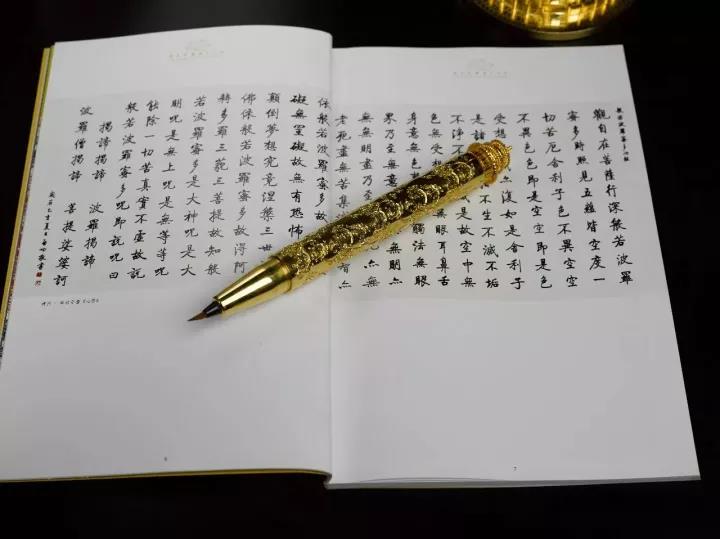 般若波羅蜜多心經
觀自在菩薩行深般若波羅
蜜多時照見五蘊皆空度一
切苦厄舍利子色不異空空
不異色色即是空空即是色
受想亦復如是舍利子
是諸不生不滅不垢
不淨不是故空中無
色無受想無眼耳鼻舌
身意無色觸法無眼
界乃至無意無無明亦
無無明盡乃至
老死盡無苦集
依般若波羅蜜多故
礙無罣礙故無有恐怖
顛倒夢想究竟涅槃三世
佛依般若波羅蜜多故得阿
耨多羅三藐三菩提故知般
若波羅蜜多是大神咒是大
明咒是無上咒是無等等咒
能除一切苦真實不虛故說
般若波羅蜜多咒即說咒曰
揭諦揭諦 波羅揭諦
波羅僧揭諦 菩提娑婆訶
6
7